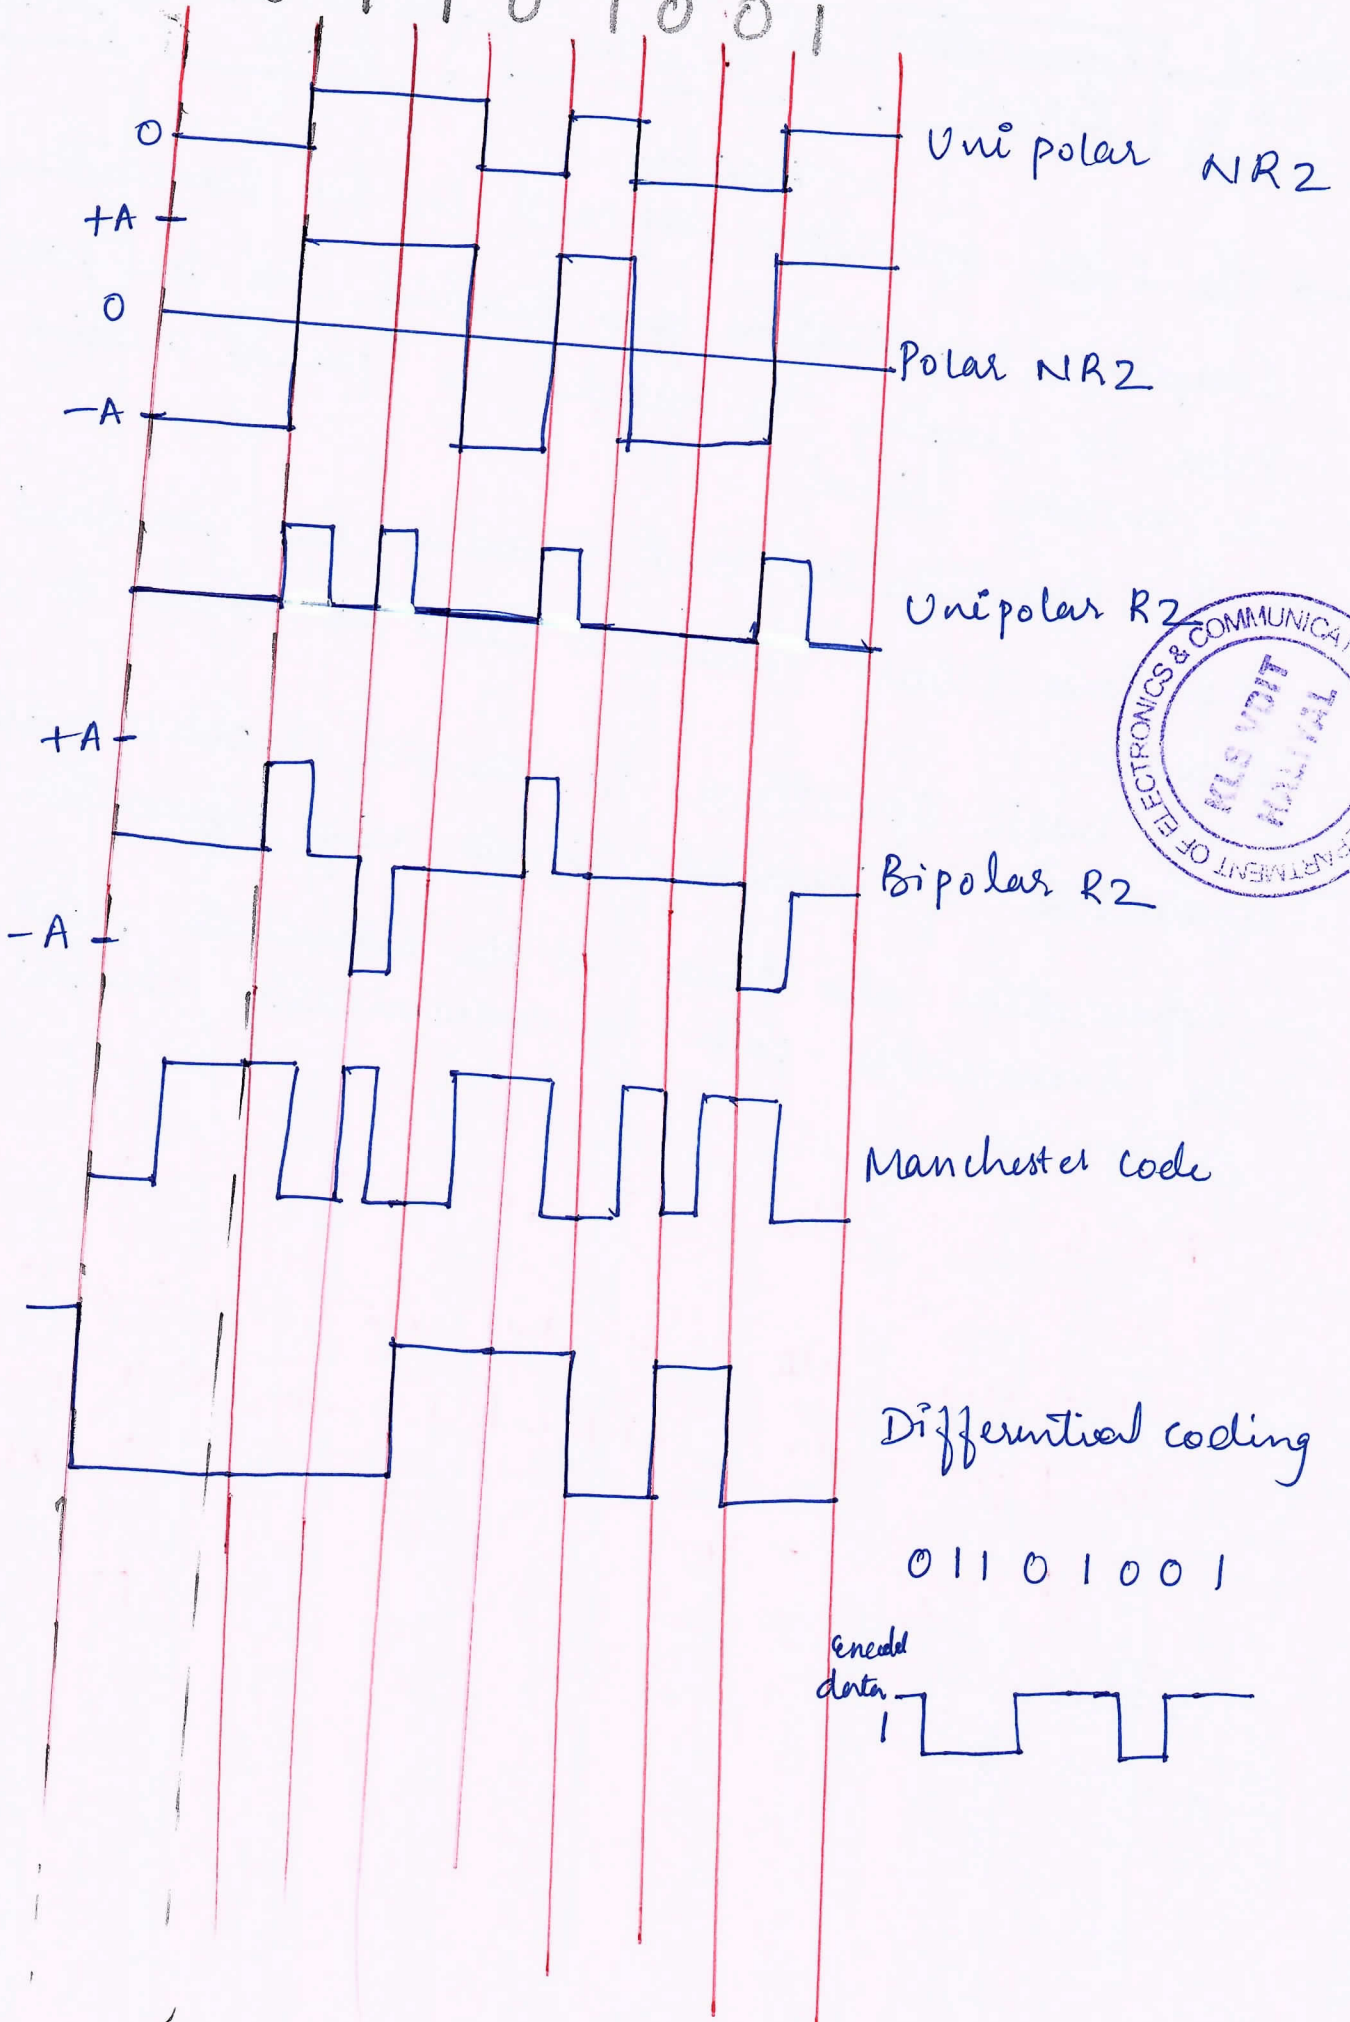 0 1 1 0 1 0 0 1
0
Unipolar NRZ
+A
0
Polar NRZ
-A
Unipolar RZ
+A
Bipolar RZ
-A
Manchester code
Differential coding
0 1 1 0 1 0 0 1
data
1
DEPARTMENT OF ELECTRONICS & COMMUNICAT
KLS VDIT
HALIYAL